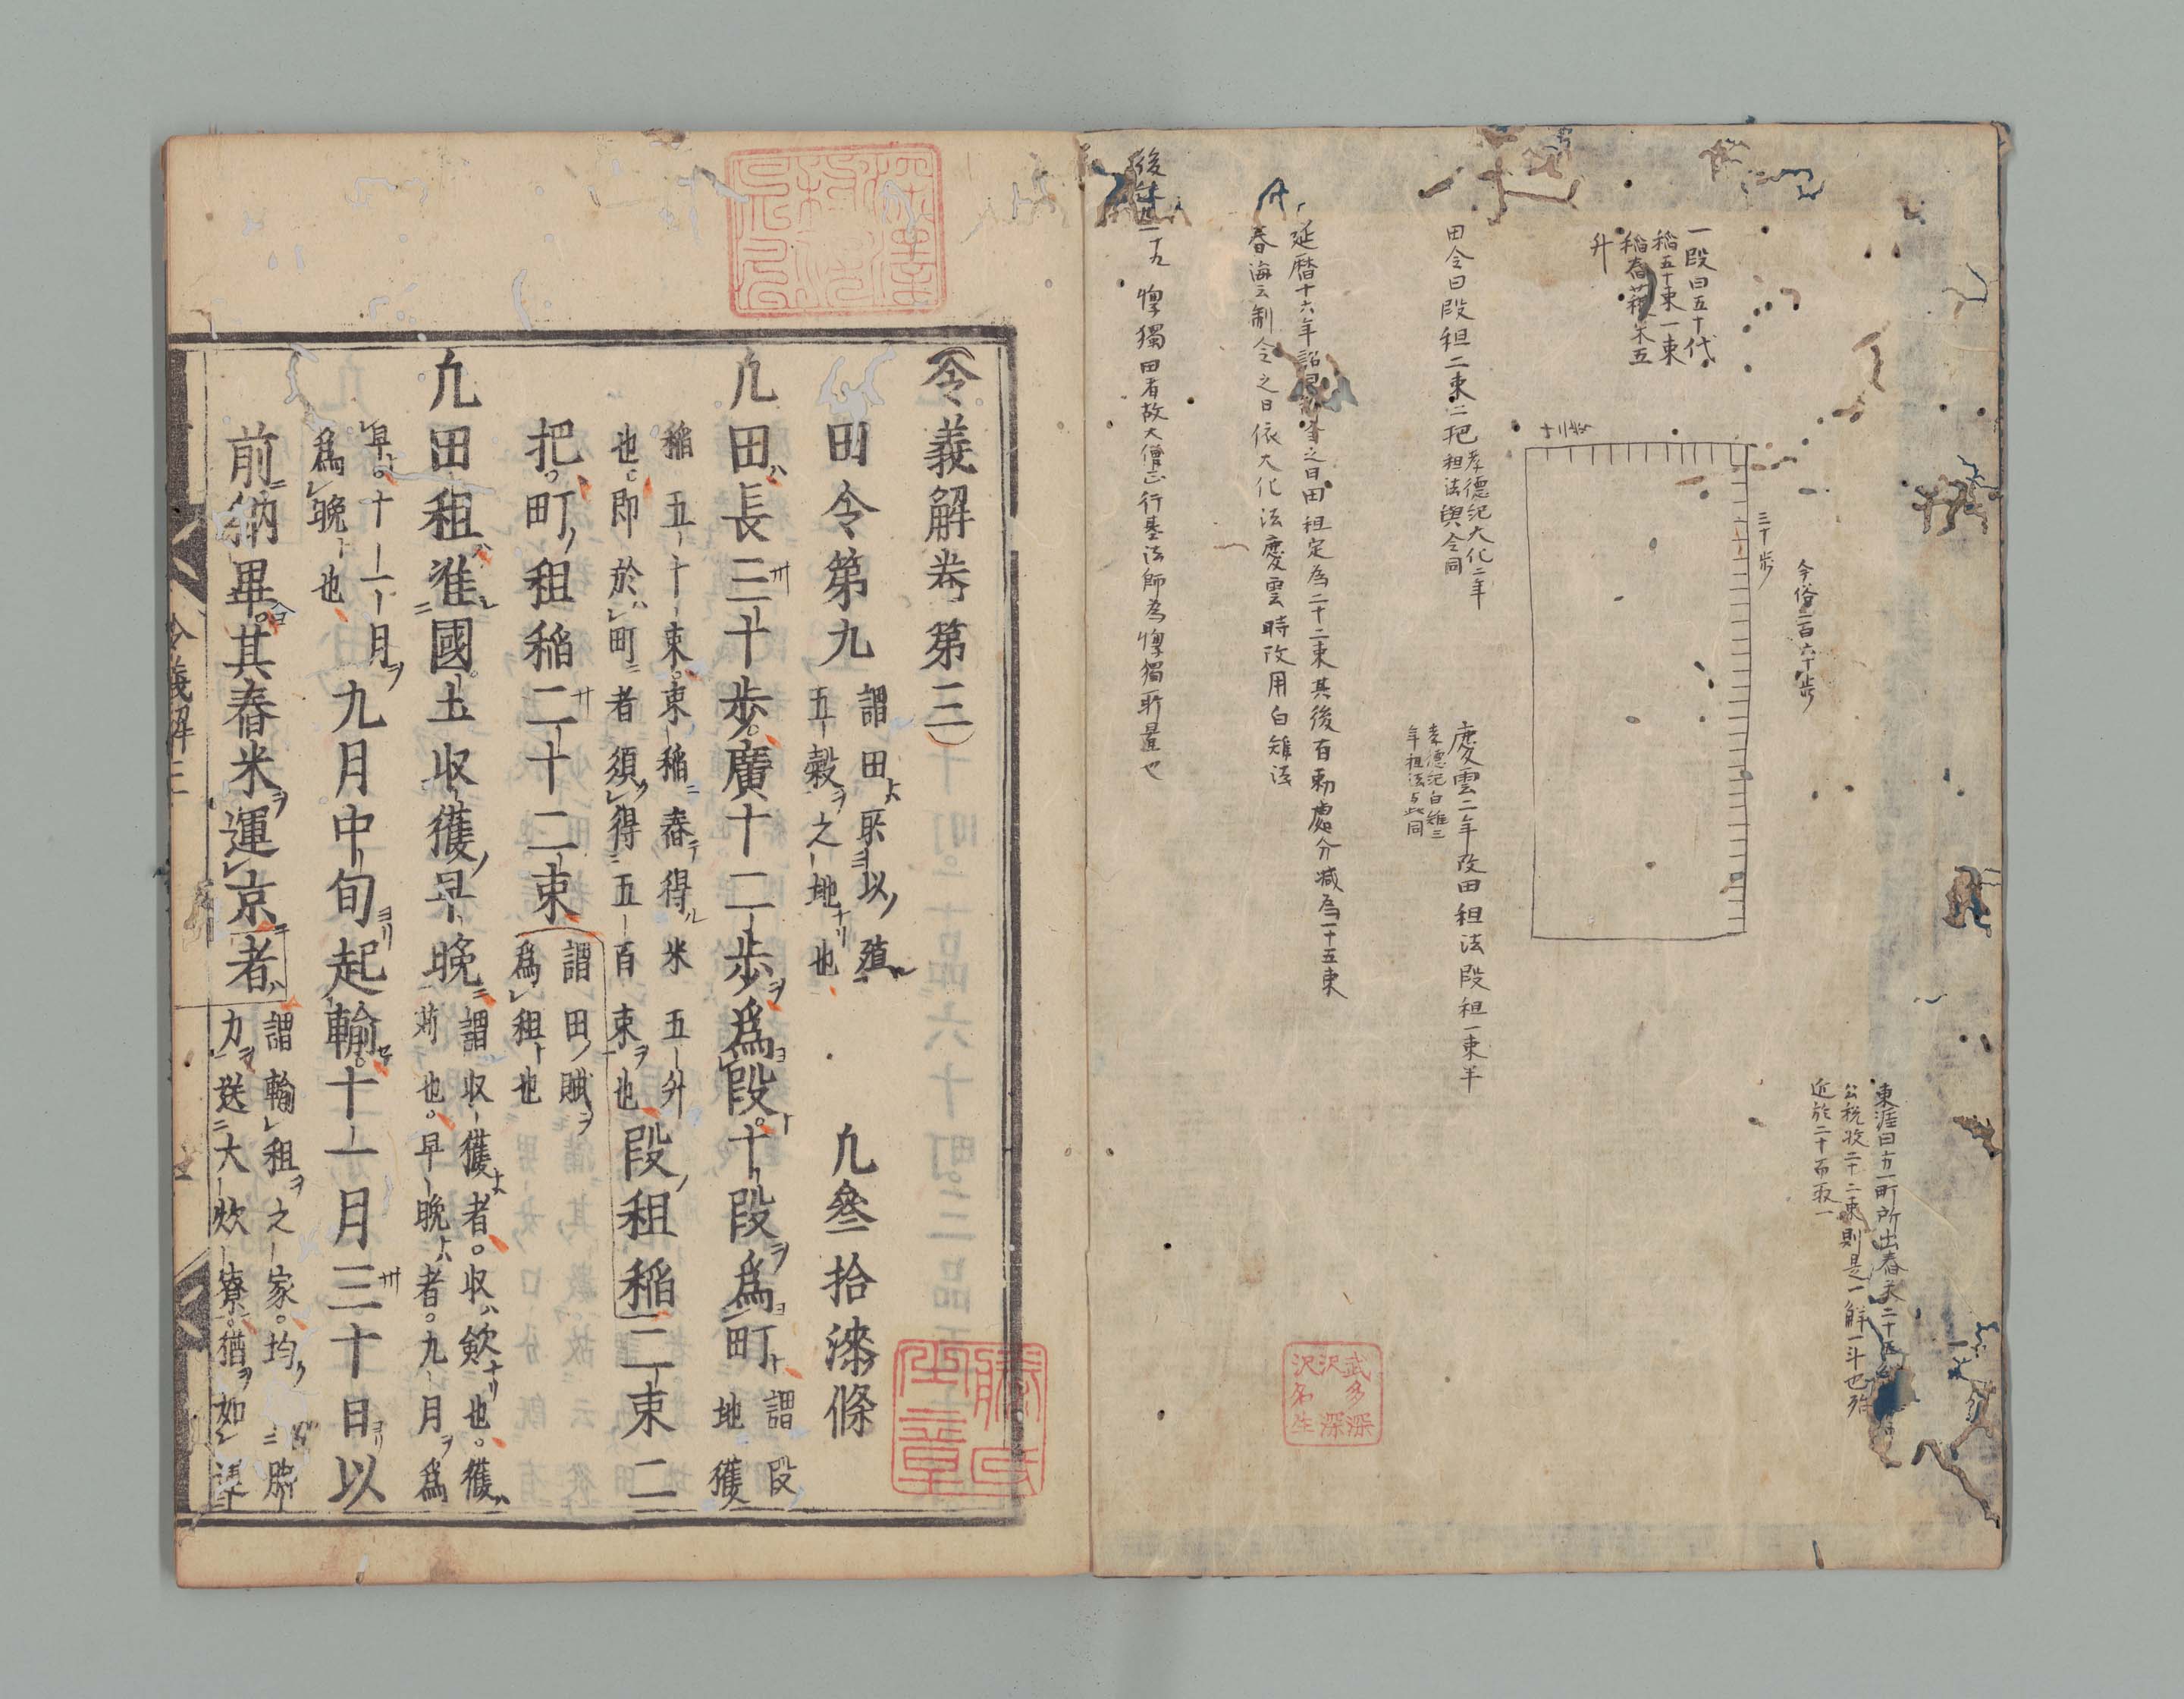 一段曰五十代
稻五十束一束
稻舂得米五
升
十二歩
三十歩
今俗三百六十歩
東涯曰方一町所出舂米二十五
公税收二十二束則是一斛一斗也殆
近於二十而取一
田令曰段租二束二把
孝德紀大化二年
租法與令同
慶雲二年改田租法段租一束半
孝德紀白雉三
年租法与此同
延曆十六年之日田租定為二十二束其後有勅處分減為一十五束
春海云制令之日依大化法慶雲時改用白雉法
後 二十九 惸獨田者故大僧正行基法師為惸獨所置也
武多深
沢沢深
沢名生
令義解卷第三
田令第九
謂田者所以殖
五穀之地也
凢叄拾漆條
凢田長三十歩廣十二歩爲段十段爲町
謂段
地獲
稲五十束束稲舂得米五升
也即於町者須得五百束也
段租稲二束二
把町租稲二十二束
謂田賦
爲租也
凢田租准國土収獲早晩
謂収獲者収歛也獲
苅也早晩者九月爲
早十一月
爲晩也
九月中旬起輸十一月三十日以
前納畢其舂米運京者
謂輸租之家均
力送大炊寮猶如
令義解三